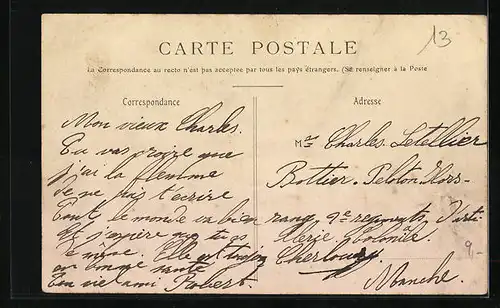 13
CARTE POSTALE
La Correspondance au recto n'est pas acceptée par tous les pays étrangers. (Se renseigner à la Poste
Correspondance
Mon vieux Charles.
Tu vas croire que
j'ai la flemme
de ne pas t'écrire
Tout le monde va bien
Et j'espère que tu es
de même. Elle est toujours
en bonne santé
Ton vieil ami Robert.
Adresse
Mr Charles Letellier
Bottier. Peloton Hors-
rang, 2e régiment, d'arti-
llerie coloniale.
Cherbourg
Manche.
9,-